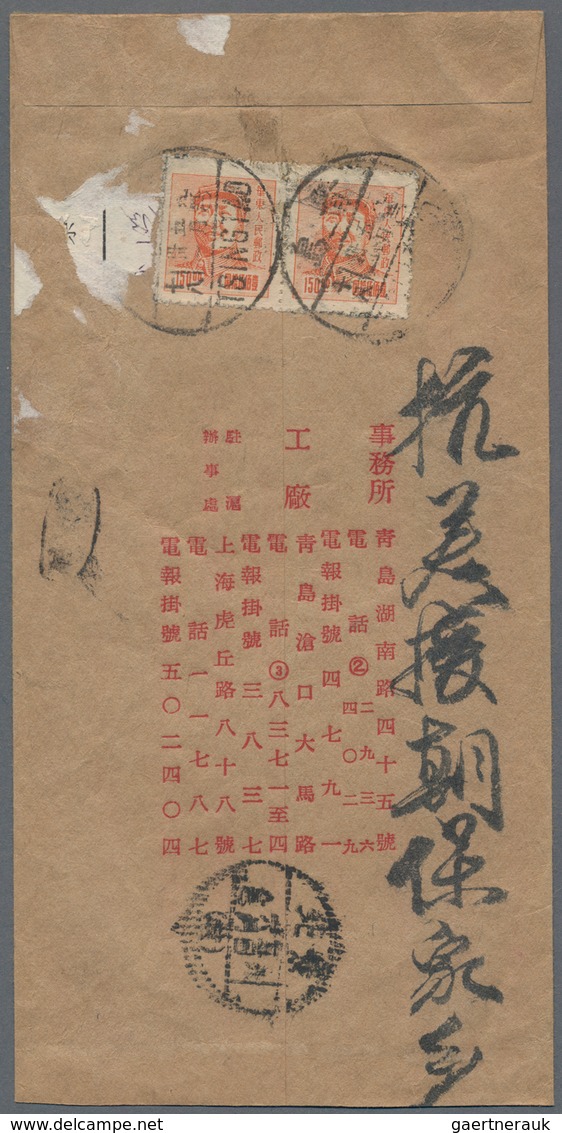 抗美援朝保家乡
事務所
青島湖南路四十五號
電話②二九三六
四〇二九
電報掛號四七九一
工廠
青島滄口大馬路
電話③八三七一至四
電報掛號三八三七
駐滬
辦事處
上海虎丘路八十八號
電話一一七八七
電報掛號五〇二四〇四
華東人民郵政
華東人民郵政
TSINGTAO
青島
北京
gaertnerauk